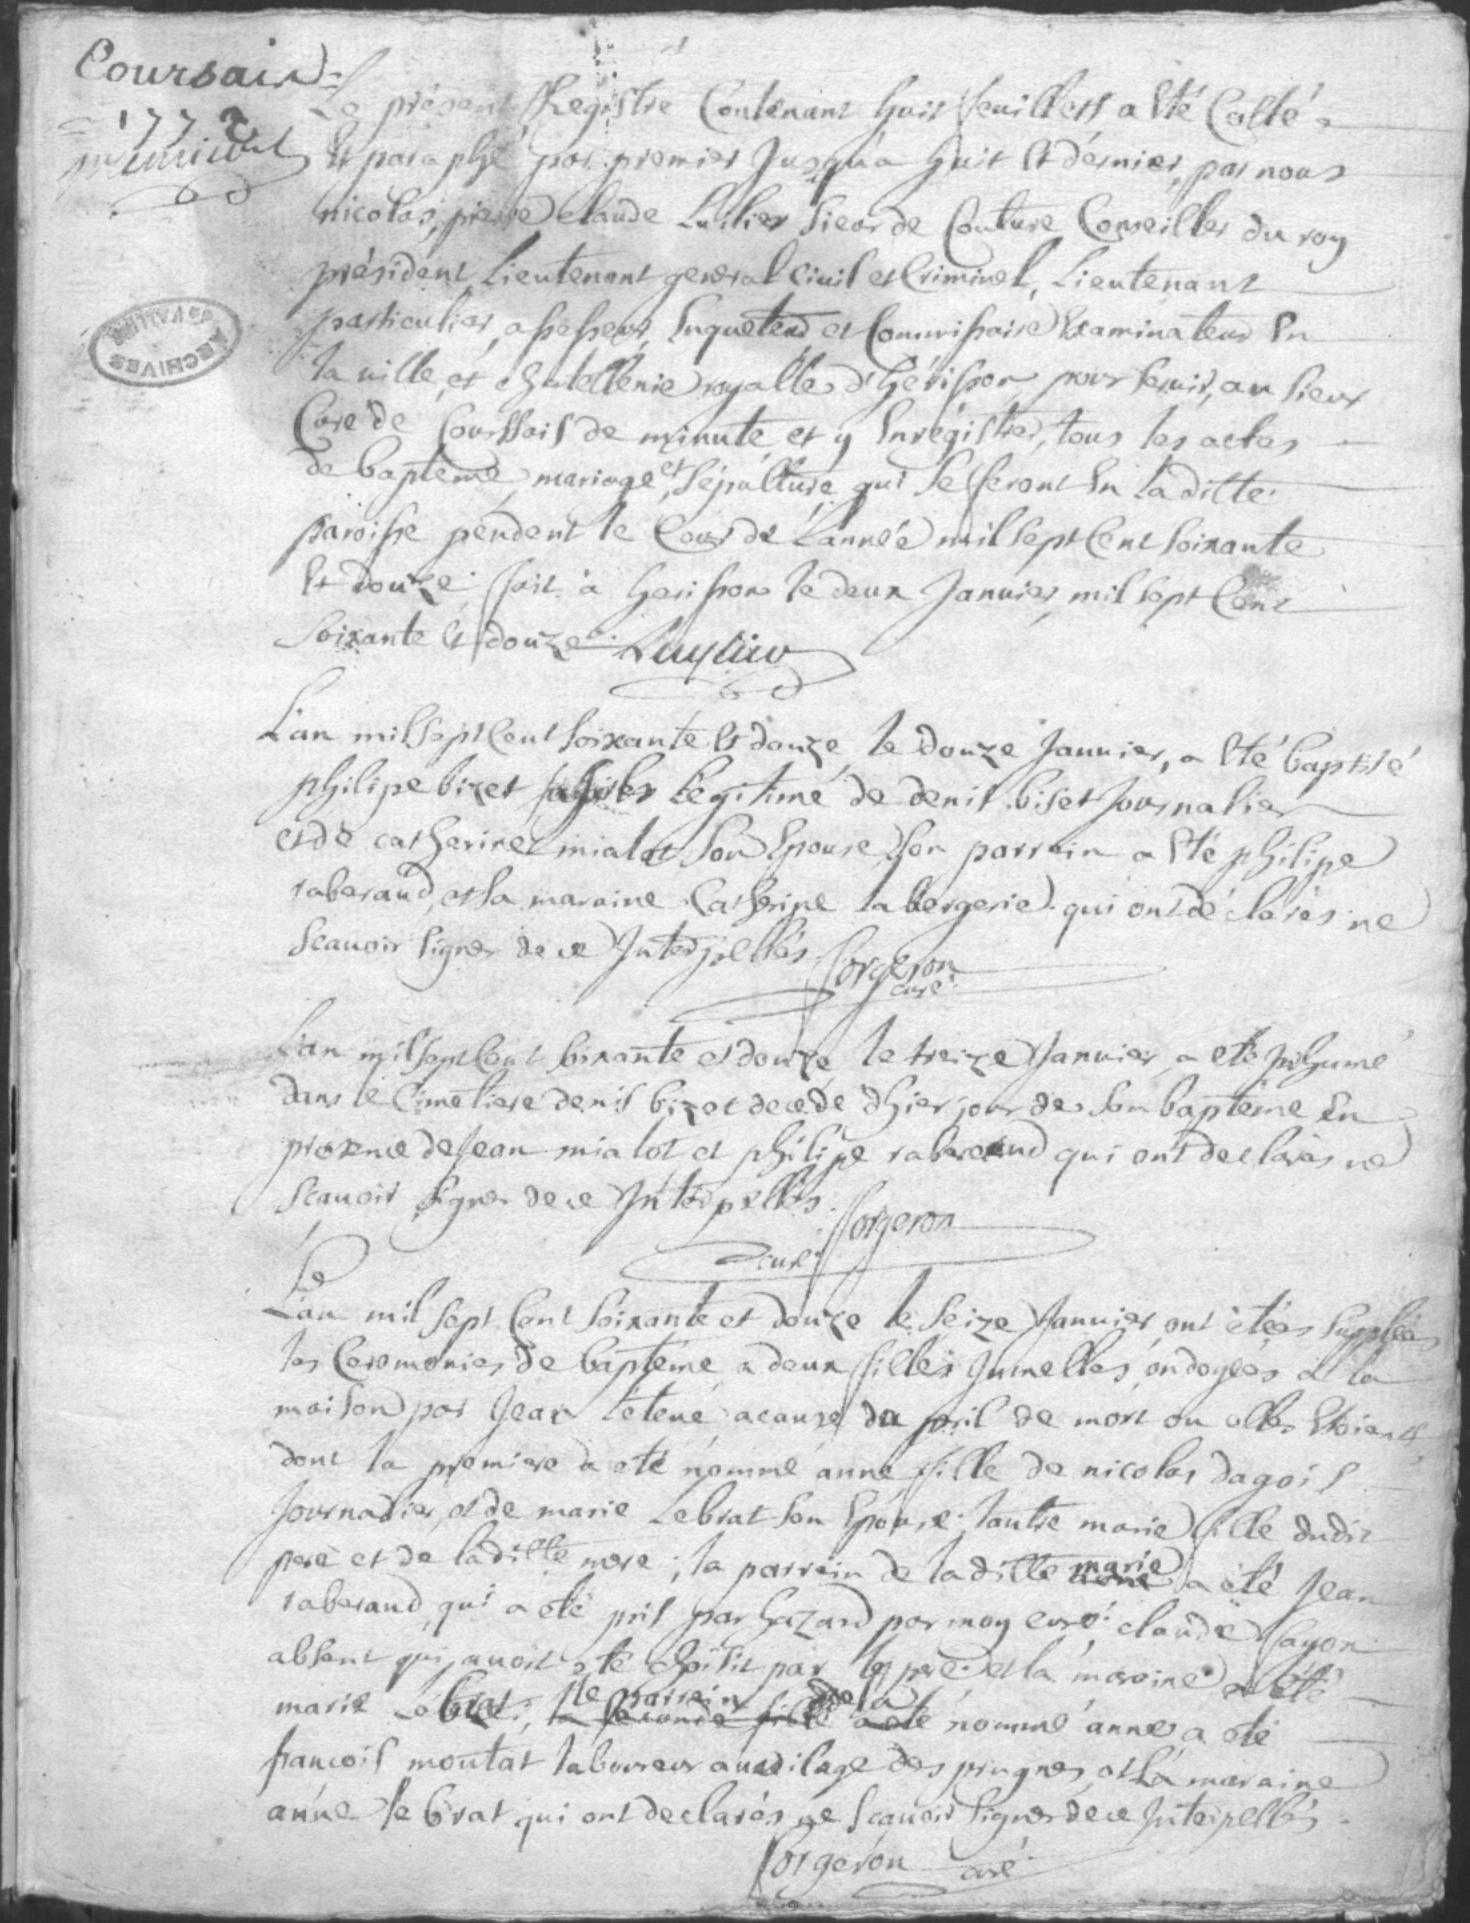 Coursais
1772
Le présent Registre Contenant huit feuillets a Eté Cotté
Et paraphé par premier Jusqu'a huit Et dernier, par nous
nicolas, pierre claude Luilier Sieur de Couture Conseiller du roy
président Lieutenant general Civil et Criminel, Lieutenant
particulier, assesseur, Enqueteur et Commissaire Examinateur En
la ville et chatellenie royalle d'hérisson pour servir, au sieur
Curé de Courssais de minute et y Enrégistrer, tous les actes
de baptême, mariage et Sépulture qui se feront En laditte
paroisse pendent le Cour de L'année mil sept Cent soixante
Et douze. fait à herisson le deux Janvier, mil sept Cent
soixante Et douze.
ARCHIVES
DE L'ALLIER
L'an mil sept Cent soixante Et douze, le douze Janvier, a Eté baptisé
philipe bizet légitimé de denis biset Journalier
et de catherine mialot son Epouse, son parrain a Eté philipe
raberaud, et sa maraine Catherine labergerie qui ont déclarés ne
scavoir signer de ce Interpellés. forgeron
curé
L'an mil sept Cent soixante et douze le treize Janvier a eté inhumé
dans le Cimetiere denis bizet decedé d'hier jour de son baptême En
presence de Jean mialot et philipe raberaud qui ont declarés ne
scavoir signer de ce Interpellés.
forgeron
curé
L'an mil sept Cent soixante et douze le seize Janvier ont étées suppleés
les Ceremonies de baptême a deux filles Jumelles ondoyées à la
maison par Jean létené acause du péril de mort ou elles Etoient
dont la premiere a eté nommé anne fille de nicolas dagois
Journalier, et de marie Lebrat son Epouse; l'autre marie fille dudit
pere et de laditte mere; la parrein de laditte marie a été Jean
raberaud qui a eté pris par hazard par moy curé claude fayon
absent qui avoit eté choisit par le pere et la maraine a été
marie Lebrat; le parrein de la nommé anne a eté
francois moutat laboureur au vilage des prugnes et la maraine
anne le brat qui ont declarés ne scavoir signer de ce Interpellés.
forgeron curé